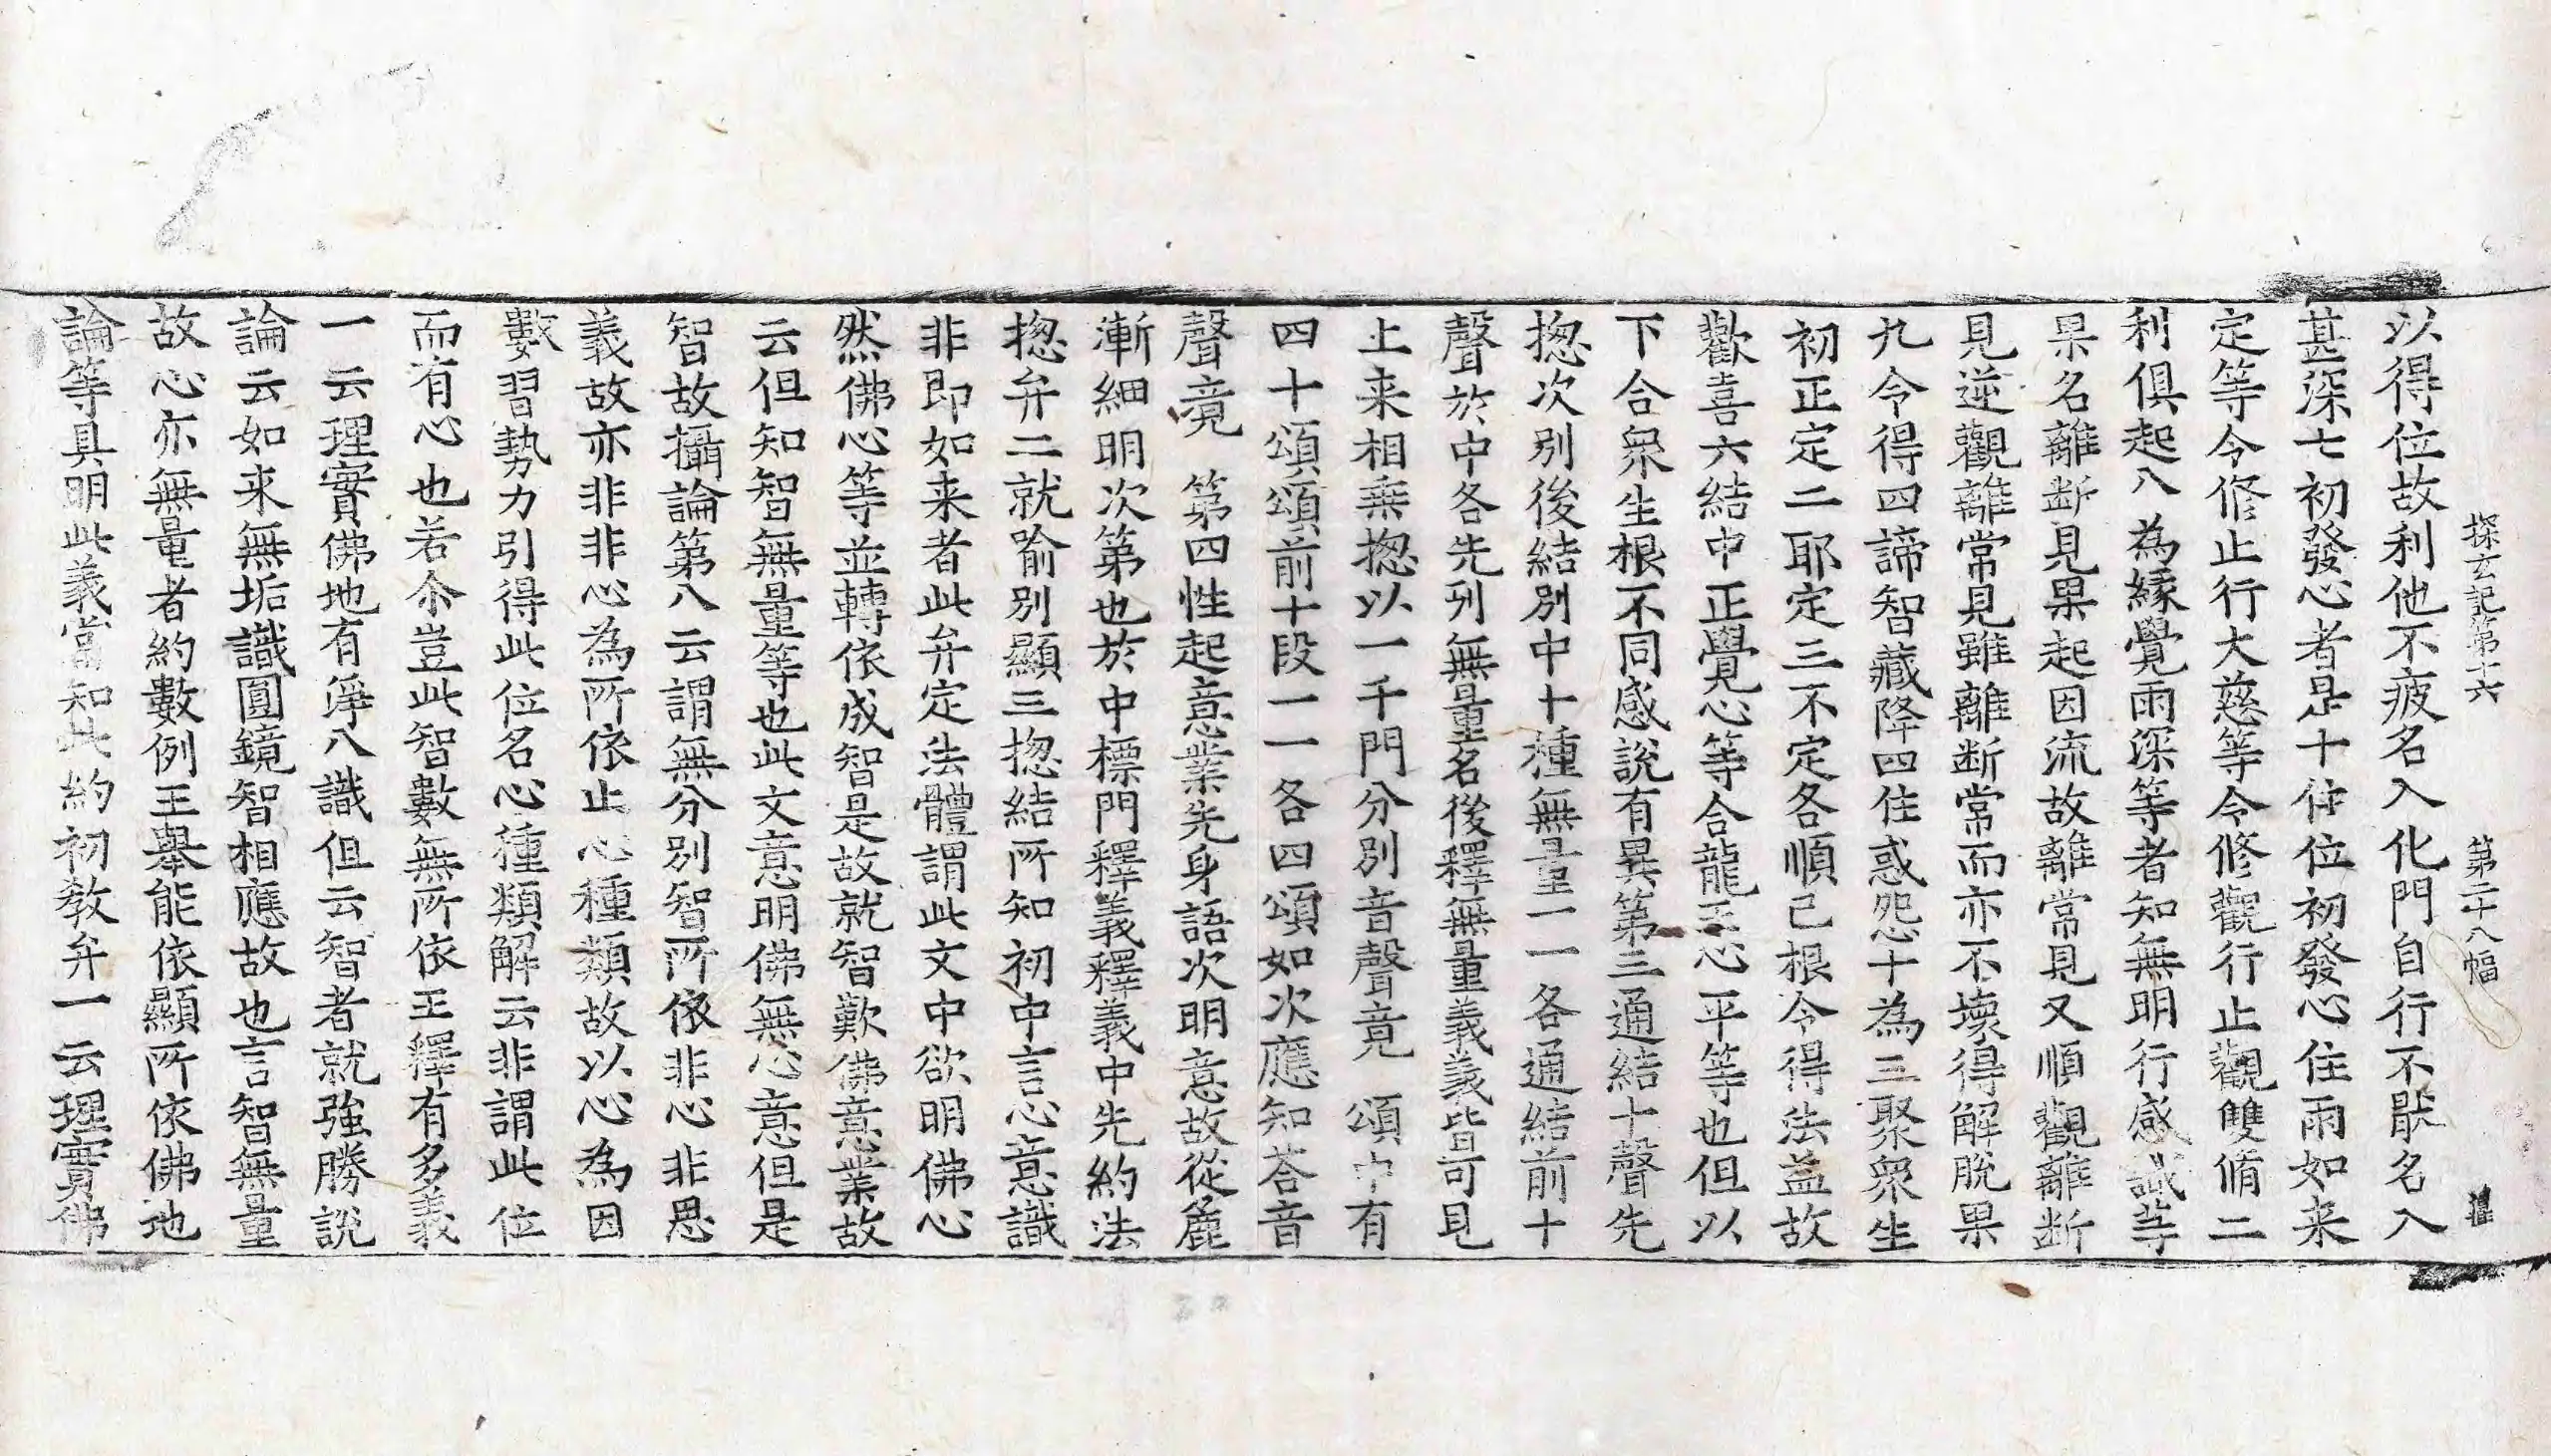 探玄記第十六　第二十八幅
以得位故利他不疲名入化門自行不猒名入
甚深七初發心者是十住位初發心住雨如来
定等令修止行大慈等令修觀行止觀雙脩二
利俱起八為緣覺雨深等者知無明行感識等
果名離断見果起因流故離常見又順觀離断
見逆觀離常見雖離断常而亦不壞得解脫果
九令得四諦智藏降四住惑怨十為三聚衆生
初正定二耶定三不定各順己根令得法益故
歡喜六結中正覺心等合龍王心平等也但以
下合衆生根不同感說有異第三通結十聲先
揔次別後結別中十種無量一一各通結前十
聲於中各先列無量名後釋無量義義皆可見
上来相乘揔以一千門分別音聲竟　頌中有
四十頌頌前十段一一各四頌如次應知荅音
聲竟　第四性起意業先身語次明意故從麁
漸細明次第也於中標門釋義釋義中先約法
揔弁二就喻別顯三揔結所知初中言心意識
非即如来者此弁定法體謂此文中欲明佛心
然佛心等並轉依成智是故就智歎佛意業故
云但知智無量等也此文意明佛無心意但是
智故攝論第八云謂無分別智所依非心非思
義故亦非非心為所依止心種類故以心為因
數習勢力引得此位名心種類解云非謂此位
而有心也若尒豈此智數無所依王釋有多義
一云理實佛地有淨八識但云智者就強勝說
論云如来無垢識圓鏡智相應故也言智無量
故心亦無量者約數例王舉能依顯所依佛地
論等具明此義當知此約初教弁一云理實佛